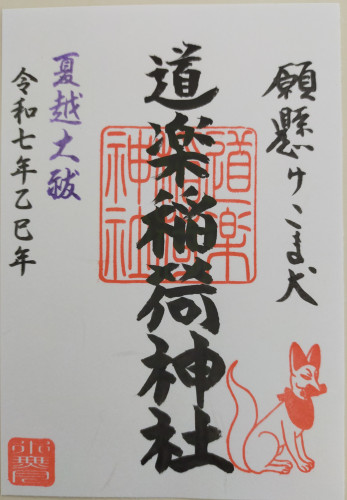 願懸けこま犬
道楽稲荷神社
道楽稲荷神社
夏越大祓
令和七年乙巳年